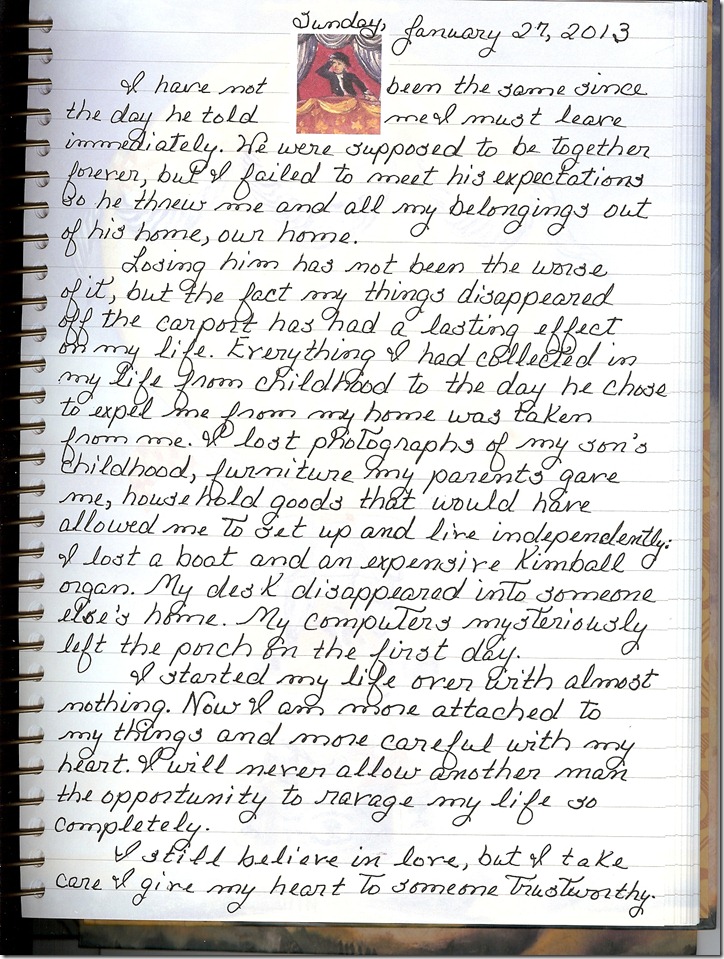 Sunday, January 27, 2013
I have not been the same since
the day he told me I must leave
immediately. We were supposed to be together
forever, but I failed to meet his expectations
so he threw me and all my belongings out
of his home, our home.
Losing him has not been the worse
of it, but the fact my things disappeared
off the carport has had a lasting effect
on my life. Everything I had collected in
my life from childhood to the day he chose
to expel me from my home was taken
from me. I lost photographs of my son's
childhood, furniture my parents gave
me, household goods that would have
allowed me to set up and live independently;
I lost a boat and an expensive Kimball
organ. My desk disappeared into someone
else's home. My computers mysteriously
left the porch on the first day.
I started my life over with almost
nothing. Now I am more attached to
my things and more careful with my
heart. I will never allow another man
the opportunity to ravage my life so
completely.
I still believe in love, but I take
care I give my heart to someone trustworthy.